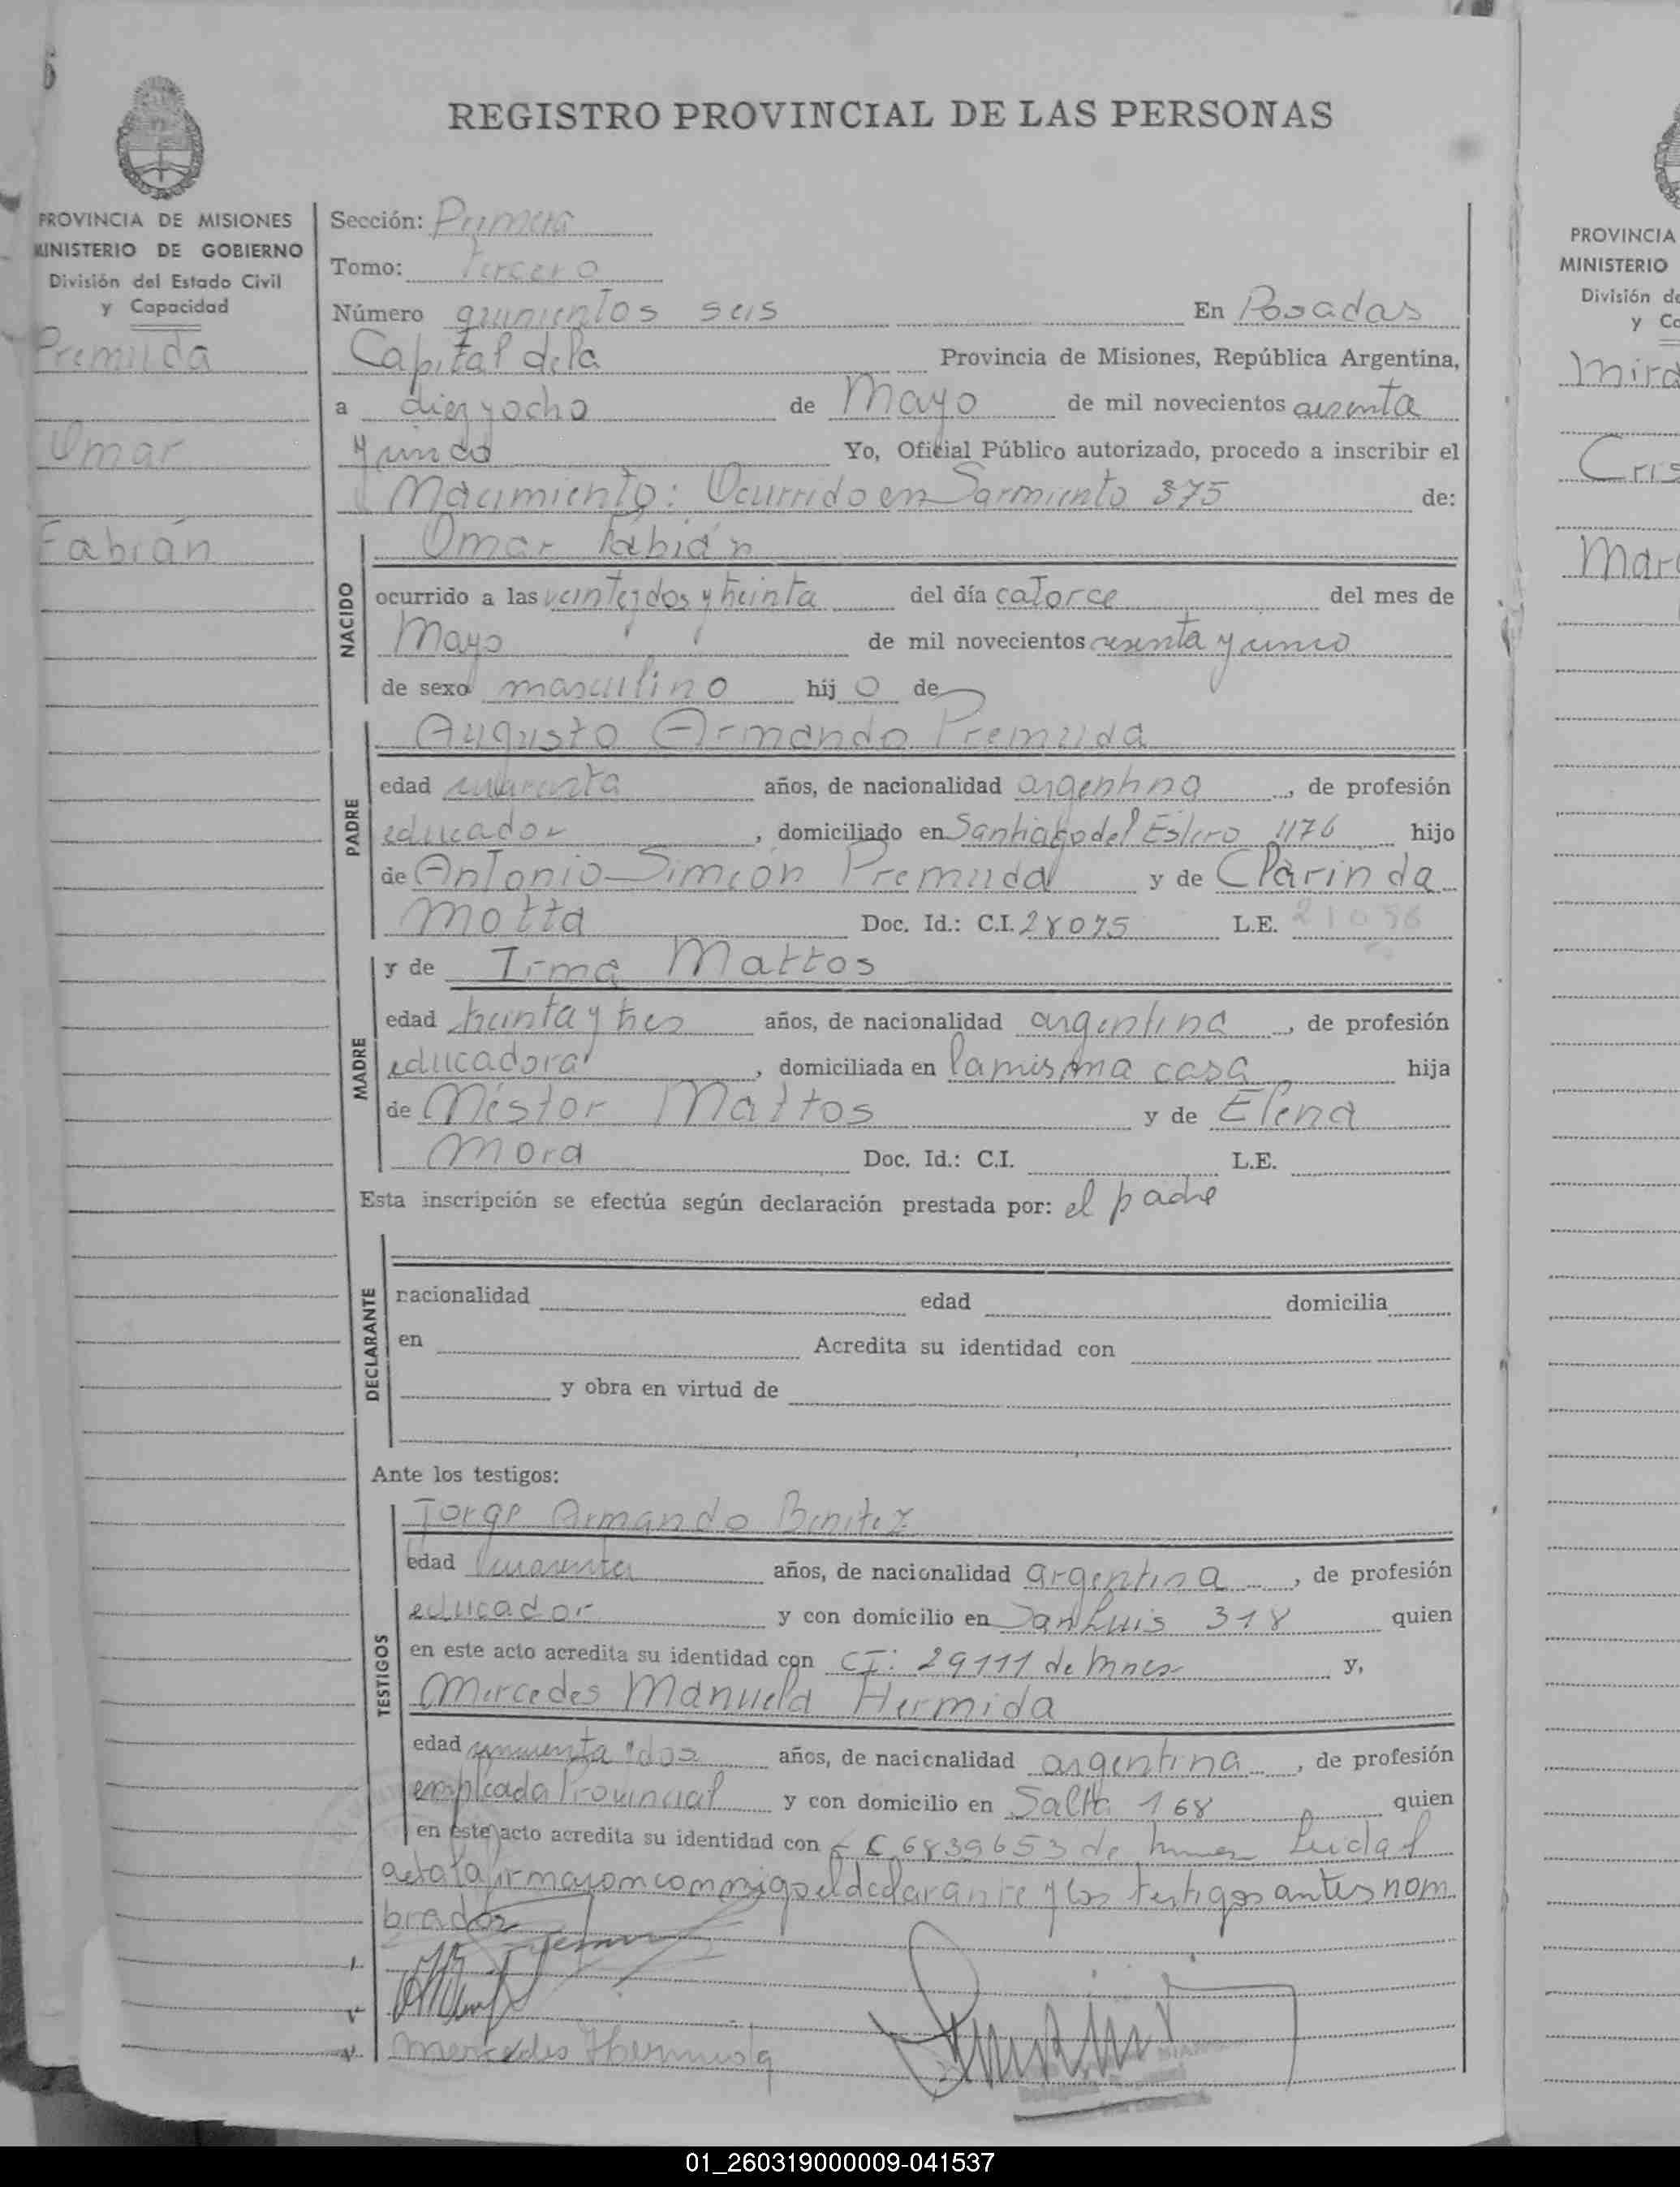 REGISTRO PROVINCIAL DE LAS PERSONAS
PROVINCIA DE MISIONES
MINISTERIO DE GOBIERNO
División del Estado Civil
y Capacidad
Premuda
Omar
Fabián
Sección: Primera
Tomo: Tercero
Número quinientos seis En Posadas
Capital de la Provincia de Misiones, República Argentina,
a diez y ocho de Mayo de mil novecientos sesenta
y cinco Yo, Oficial Público autorizado, procedo a inscribir el
Nacimiento: Ocurrido en Sarmiento 375 de:
NACIDO
Omar Fabián
ocurrido a las veintidos y treinta del día catorce del mes de
Mayo de mil novecientos sesenta y cinco
de sexo masculino hij o de
PADRE
Augusto Armando Premuda
edad cuarenta años, de nacionalidad argentina, de profesión
educador, domiciliado en Santiago del Estero 1176 hijo
de Antonio Simeón Premuda y de Clarinda
Motta Doc. Id.: C.I. 28075 L.E.
MADRE
y de Irma Mattos
edad treinta y tres años, de nacionalidad argentina, de profesión
educadora, domiciliada en la misma casa hija
de Néstor Mattos y de Elena
Mora Doc. Id.: C.I. L.E.
Esta inscripción se efectúa según declaración prestada por: el padre
DECLARANTE
nacionalidad edad domicilia
en Acredita su identidad con
y obra en virtud de
Ante los testigos:
TESTIGOS
Jorge Armando Benitez
edad cuarenta años, de nacionalidad argentina, de profesión
educador y con domicilio en San Luis 318 quien
en este acto acredita su identidad con CI: 29111 de Mnes y,
Mercedes Manuela Hermida
edad cincuenta y dos años, de nacionalidad argentina, de profesión
empleada Provincial y con domicilio en Salta 168 quien
en este acto acredita su identidad con 6839653 de Leida el
acta la firmaron conmigo el declarante y los testigos antes nom
brados
Mercedes Hermida
PROVINCIA
MINISTERIO
División de
y Ca
Mira
Cris
Marc
01_260319000009-041537